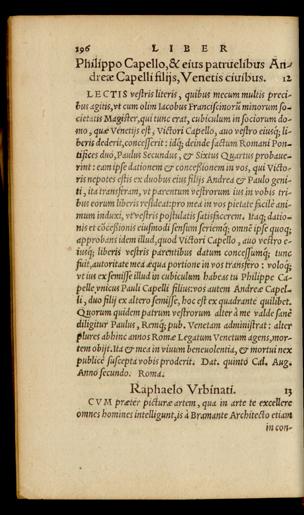 196 LIBER
Philippo Capello, & eius patruelibus An-
dreæ Capelli filijs, Venetis ciuibus. 12
LECTIS vestris literis, quibus mecum multis preci-
bus agitis, vt cum olim Iacobus Franciscinorũ minorum so-
cietatis Magister, qui tunc erat, cubiculum in sociorum do-
mo, quæ Venetijs est, Victori Capello, auo vestro eiusq; li-
beris dederit, concesserit: idq; deinde factum Romani Pon-
tifices duo, Paulus Secundus, & Sixtus Quartus probaue-
rint: eam ipse dationem & concessionem in vos, qui Victo-
ris nepotes estis ex duobus eius filijs Andrea & Paulo geni-
ti, ita transferam, vt parentum vestrorum ius in vobis tri-
bus eorum liberis resideat: pro mea in vos pietate facilè ani-
mum induxi, vt vestris postulatis satisfacerem. Itaq; datio-
nis et cõcessionis eiusmodi sensum seriemq; omnẽ ipse quoq;
approbans idem illud, quod Victori Capello, auo vestro e-
iusq; liberis vestris parentibus datum concessumq; tunc
fuit, autoritate mea æqua portione in vos transfero: voloq;
vt ius ex semisse illud in cubiculum habeas tu Philippe Ca-
pelle, vnicus Pauli Capelli filius: vos autem Andreæ Capel-
li, duo filij ex altero semisse, hoc est ex quadrante quilibet.
Quorum quidem patrum vestrorum alter à me valde sanè
diligitur Paulus, Remq; pub. Venetam administrat: alter
plures abhinc annos Romæ Legatum Venetum agens, mor-
tem obijt. Ita & mea in viuum beneuolentia, & mortui nex
publicè suscepta vobis proderit. Dat. quintò Cal. Aug.
Anno secundo. Roma.
Raphaelo Vrbinati. 13
CVM præter picturæ artem, qua in arte te excellere
omnes homines intelligunt, is à Bramante Architecto etiam
in con-